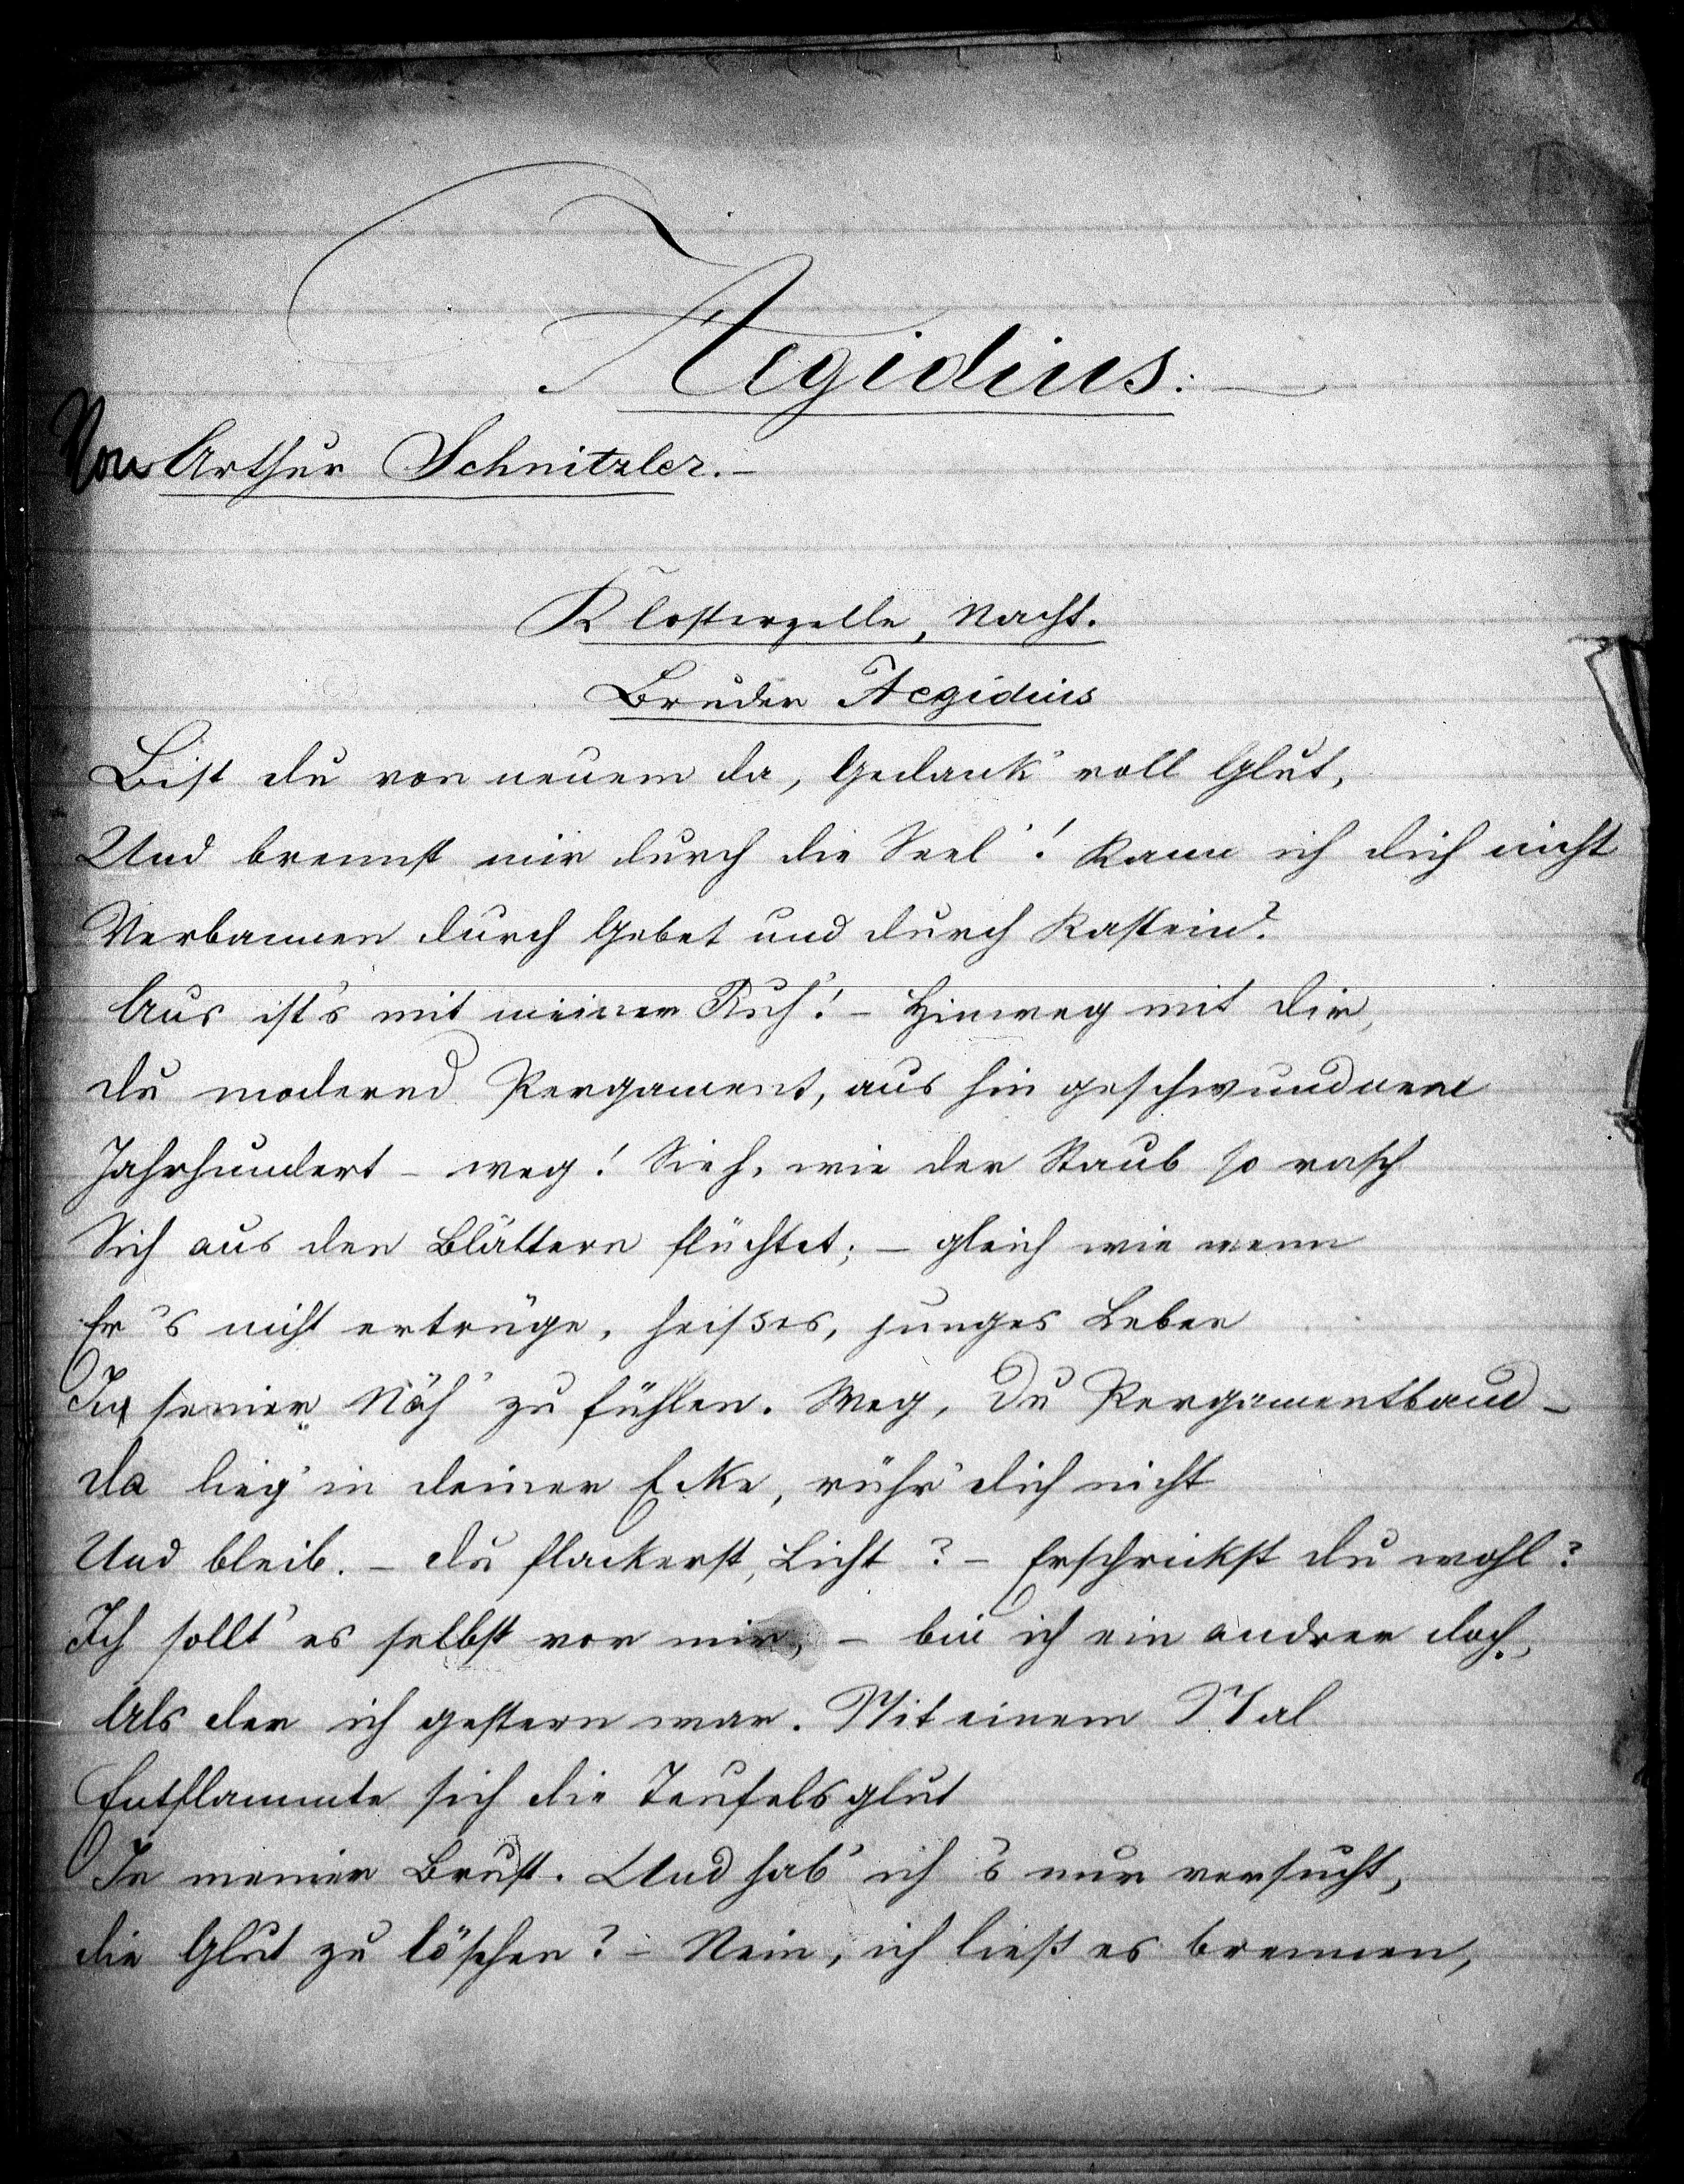 Aegidius.
Von Arthur Schnitzler. –
Klosterzelle, Nacht.
Bruder Aegidius
Bist du von neuem da, Gedank' voll Glut,
Und brennst mir durch die Seel'! Kann ich dich nicht
Verbannen durch Gebet und durch Kastein?
Aus ist's mit meiner Ruh'! – Hinweg mit dir,
du modernd Pergament, aus hin geschwundnem
Jahrhundert – weg! Sieh, wie der Staub so rasch
Sich aus den Blättern flüchtet; – gleich wie wenn
Er's nicht ertrüge, heißes, junges Leben
In seiner Näh' zu fühlen. Weg, du Pergamentband –
da lieg' in deiner Ecke, rühr' dich nicht
Und bleib. – du flackerst, Licht? – Erschrickst du wohl?
Ich sollt' es selbst vor mir, – bin ich ein andrer doch,
Als der ich gestern war. Mit einem Mal
Entflammte sich die Teufelsglut
In meiner Brust. Und hab' ich's nur versucht,
die Glut zu löschen? – Nein, ich ließ es brennen,